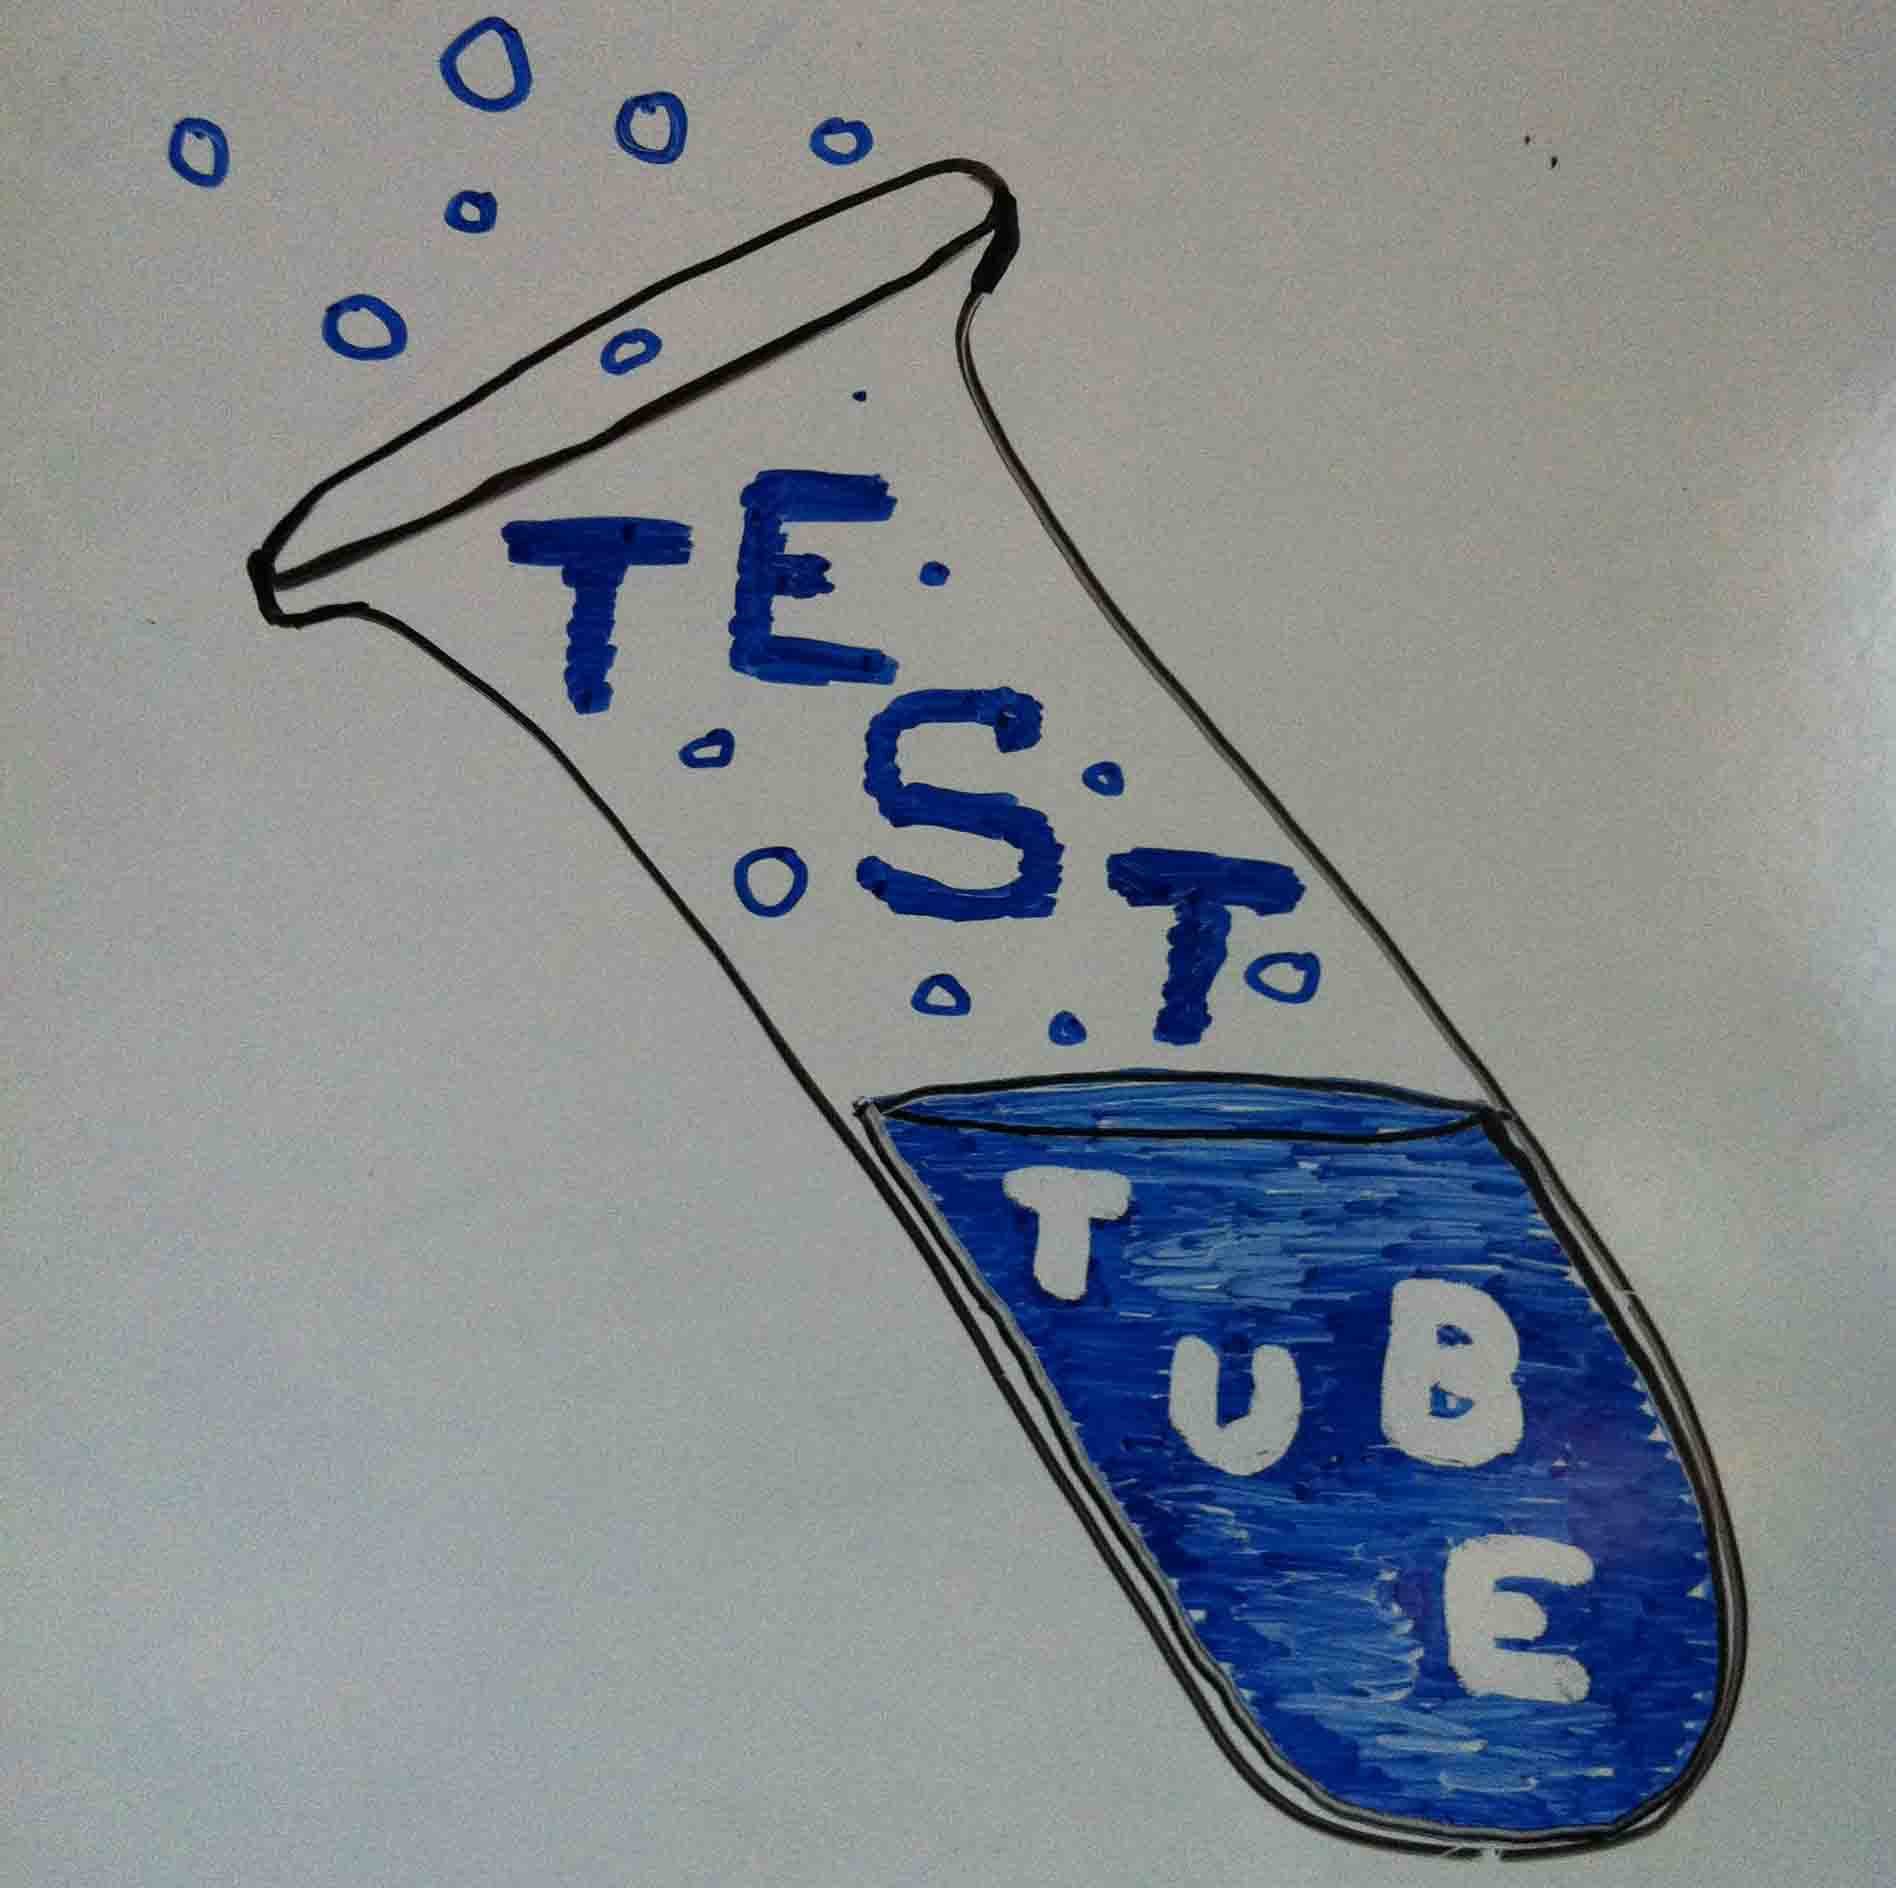 TEST
TUBE